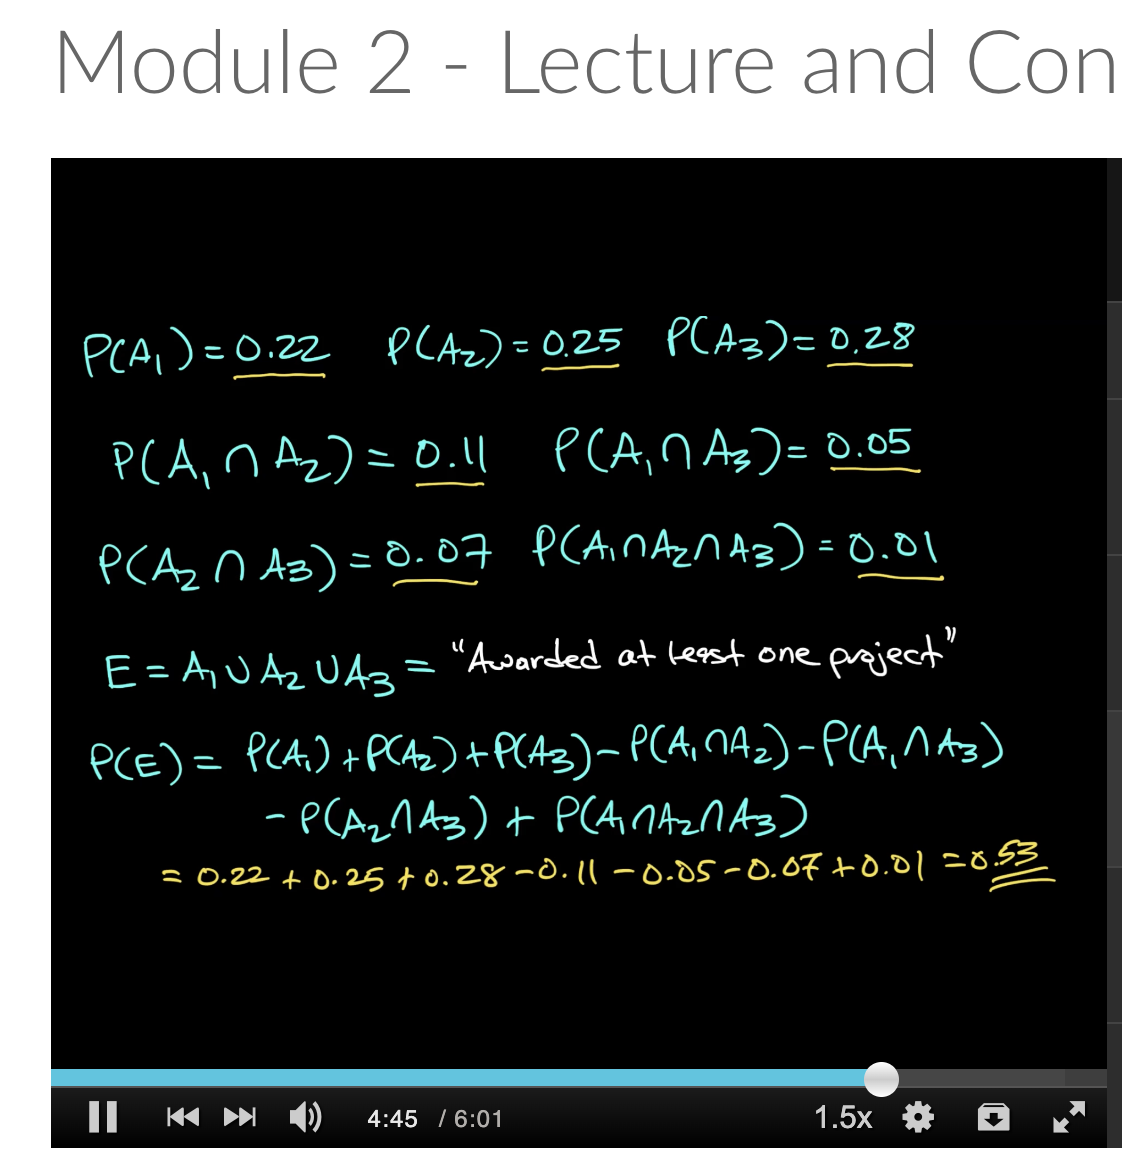 Module 2 - Lecture and Con
P(A₁) = 0.22 P(A₂) = 0.25 P(A₃) = 0.28
P(A₁ ∩ A₂) = 0.11 P(A₁ ∩ A₃) = 0.05
P(A₂ ∩ A₃) = 0.07 P(A₁∩A₂∩A₃) = 0.01
E = A₁ ∪ A₂ ∪ A₃ = "Awarded at least one project"
P(E) = P(A₁) + P(A₂) + P(A₃) - P(A₁∩A₂) - P(A₁∩A₃)
- P(A₂∩A₃) + P(A₁∩A₂∩A₃)
= 0.22 + 0.25 + 0.28 - 0.11 - 0.05 - 0.07 + 0.01 = 0.53
4:45 / 6:01 1.5x